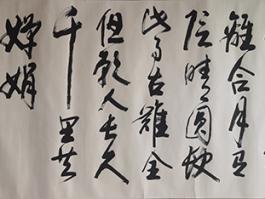 離合月有
陰晴圓缺
此事古難全
但願人長久
千里共
嬋娟